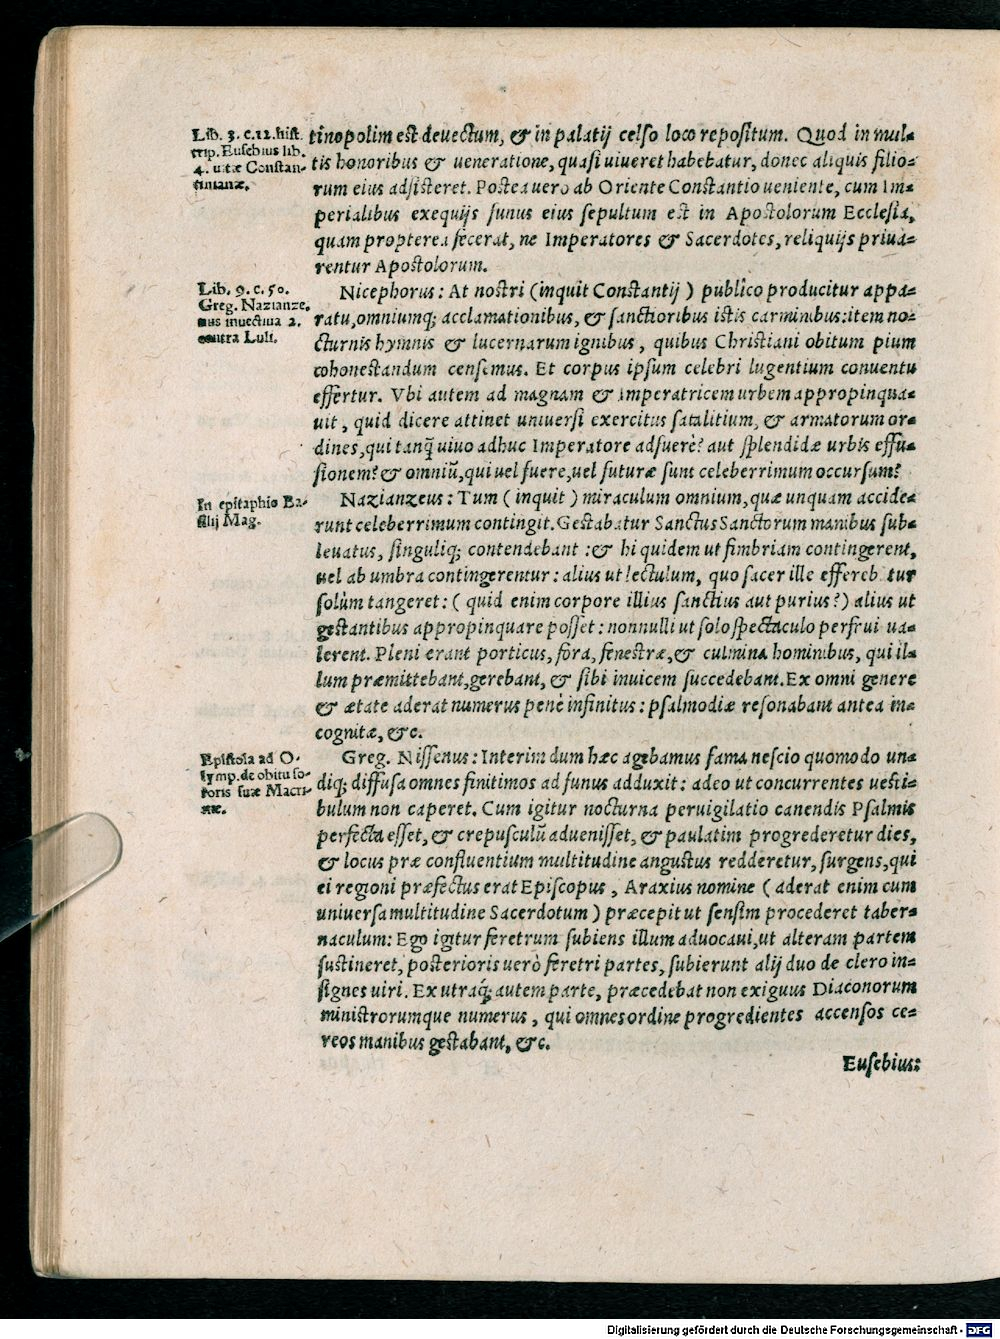 Lib. 3. c. 12. hist.
trip. Eusebius lib.
4. uitæ Constan-
tinianæ.
tinopolim est deuectum, & in palatij celso loco repositum. Quod in mul-
tis honoribus & ueneratione, quasi uiueret habebatur, donec aliquis filio-
rum eius adsisteret. Postea uero ab Oriente Constantio ueniente, cum Im-
perialibus exequijs funus eius sepultum est in Apostolorum Ecclesia,
quam propterea fecerat, ne Imperatores & Sacerdotes, reliquijs priua-
rentur Apostolorum.
Lib. 9. c. 50.
Greg. Nazianze-
nus inuectiua 2.
contra Iuli.
Nicephorus: At nostri (inquit Constantij) publico producitur appa-
ratu, omniumq; acclamationibus, & sanctioribus istis carminibus: item no-
cturnis hymnis & lucernarum ignibus, quibus Christiani obitum pium
cohonestandum censemus. Et corpus ipsum celebri lugentium conuentu
effertur. Vbi autem ad magnam & imperatricem urbem appropinqua-
uit, quid dicere attinet uniuersi exercitus satalitium, & armatorum or-
dines, qui tanq̃ uiuo adhuc Imperatore adfuere? aut splendidæ urbis effu-
sionem? & omniũ, qui uel fuere, uel futuræ sunt celeberrimum occursum?
In epitaphio Ba-
silij Mag.
Nazianzeus: Tum (inquit) miraculum omnium, quæ unquam accide-
runt celeberrimum contingit. Gestabatur Sanctus Sanctorum manibus sub-
leuatus, singuliq; contendebant: & hi quidem ut fimbriam contingerent,
uel ab umbra contingerentur: alius ut lectulum, quo sacer ille effereb tur
solùm tangeret: (quid enim corpore illius sanctius aut purius?) alius ut
gestantibus appropinquare posset: nonnulli ut solo spectaculo perfrui ua-
lerent. Pleni erant porticus, fora, fenestræ, & culmina hominibus, qui il-
lum præmittebant, gerebant, & sibi inuicem succedebant. Ex omni genere
& ætate aderat numerus penè infinitus: psalmodiæ resonabant antea in-
cognitæ, &c.
Epistola ad O-
lymp. de obitu so-
roris suæ Macri-
næ.
Greg. Nissenus: Interim dum hæc agebamus fama nescio quomodo un-
diq; diffusa omnes finitimos ad funus adduxit: adeo ut concurrentes uesti-
bulum non caperet. Cum igitur nocturna peruigilatio canendis Psalmis
perfecta esset, & crepusculũ aduenisset, & paulatim progrederetur dies,
& locus præ confluentium multitudine angustus redderetur, surgens, qui
ei regioni præfectus erat Episcopus, Araxius nomine (aderat enim cum
uniuersa multitudine Sacerdotum) præcepit ut sensim procederet taber-
naculum: Ego igitur feretrum subiens illum aduocaui, ut alteram partem
sustineret, posterioris uerò feretri partes, subierunt alij duo de clero in-
signes uiri. Ex utraq; autem parte, præcedebat non exiguus Diaconorum
ministrorumque numerus, qui omnes ordine progredientes accensos ce-
reos manibus gestabant, &c.
Eusebius:
Digitalisierung gefördert durch die Deutsche Forschungsgemeinschaft - DFG